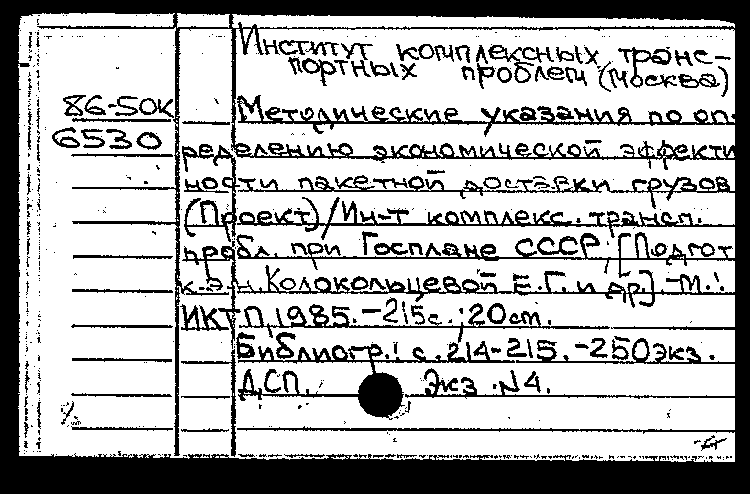 Институт комплексных транс-
портных проблем (Москва)
86-50к Методические указания по оп-
6530 ределению экономической эффекти
ности пакетной доставки грузов
(Проект)/Ин-т комплекс. трансп.
пробл. при Госплане СССР; [Подгот
к.э.н. Колокольцевой Е.Г. и др.]. -М.:
ИКТП, 1985. -215с.; 20см.
Библиогр.: с. 214-215. -250экз.
ДСП. Экз. N4.